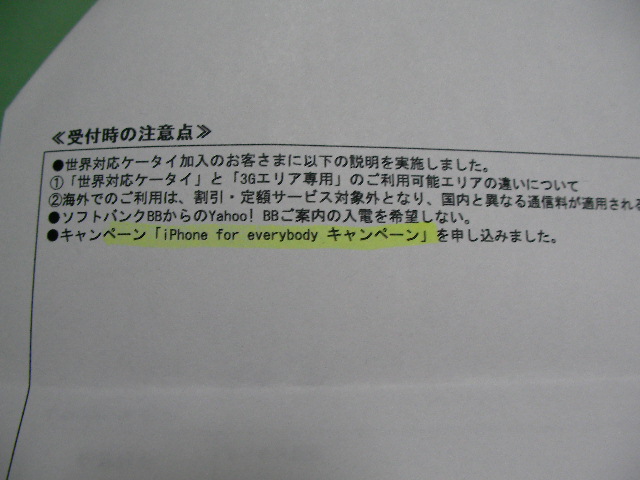 ≪受付時の注意点≫
●世界対応ケータイ加入のお客さまに以下の説明を実施しました。
①「世界対応ケータイ」と「3Gエリア専用」のご利用可能エリアの違いについて
②海外でのご利用は、割引・定額サービス対象外となり、国内と異なる通信料が適用される
●ソフトバンクBBからのYahoo! BBご案内の入電を希望しない。
●キャンペーン「iPhone for everybody キャンペーン」を申し込みました。